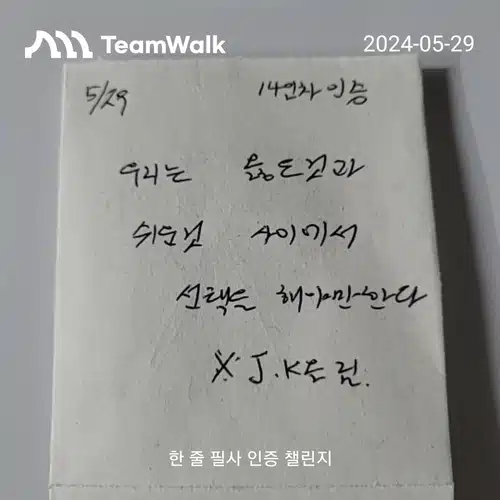 TeamWalk
2024-05-29
5/29 14연차 인증
우리는 옳은것과
쉬운것 사이에서
선택을 해야만한다
※ J.K롤링.
한 줄 필사 인증 챌린지